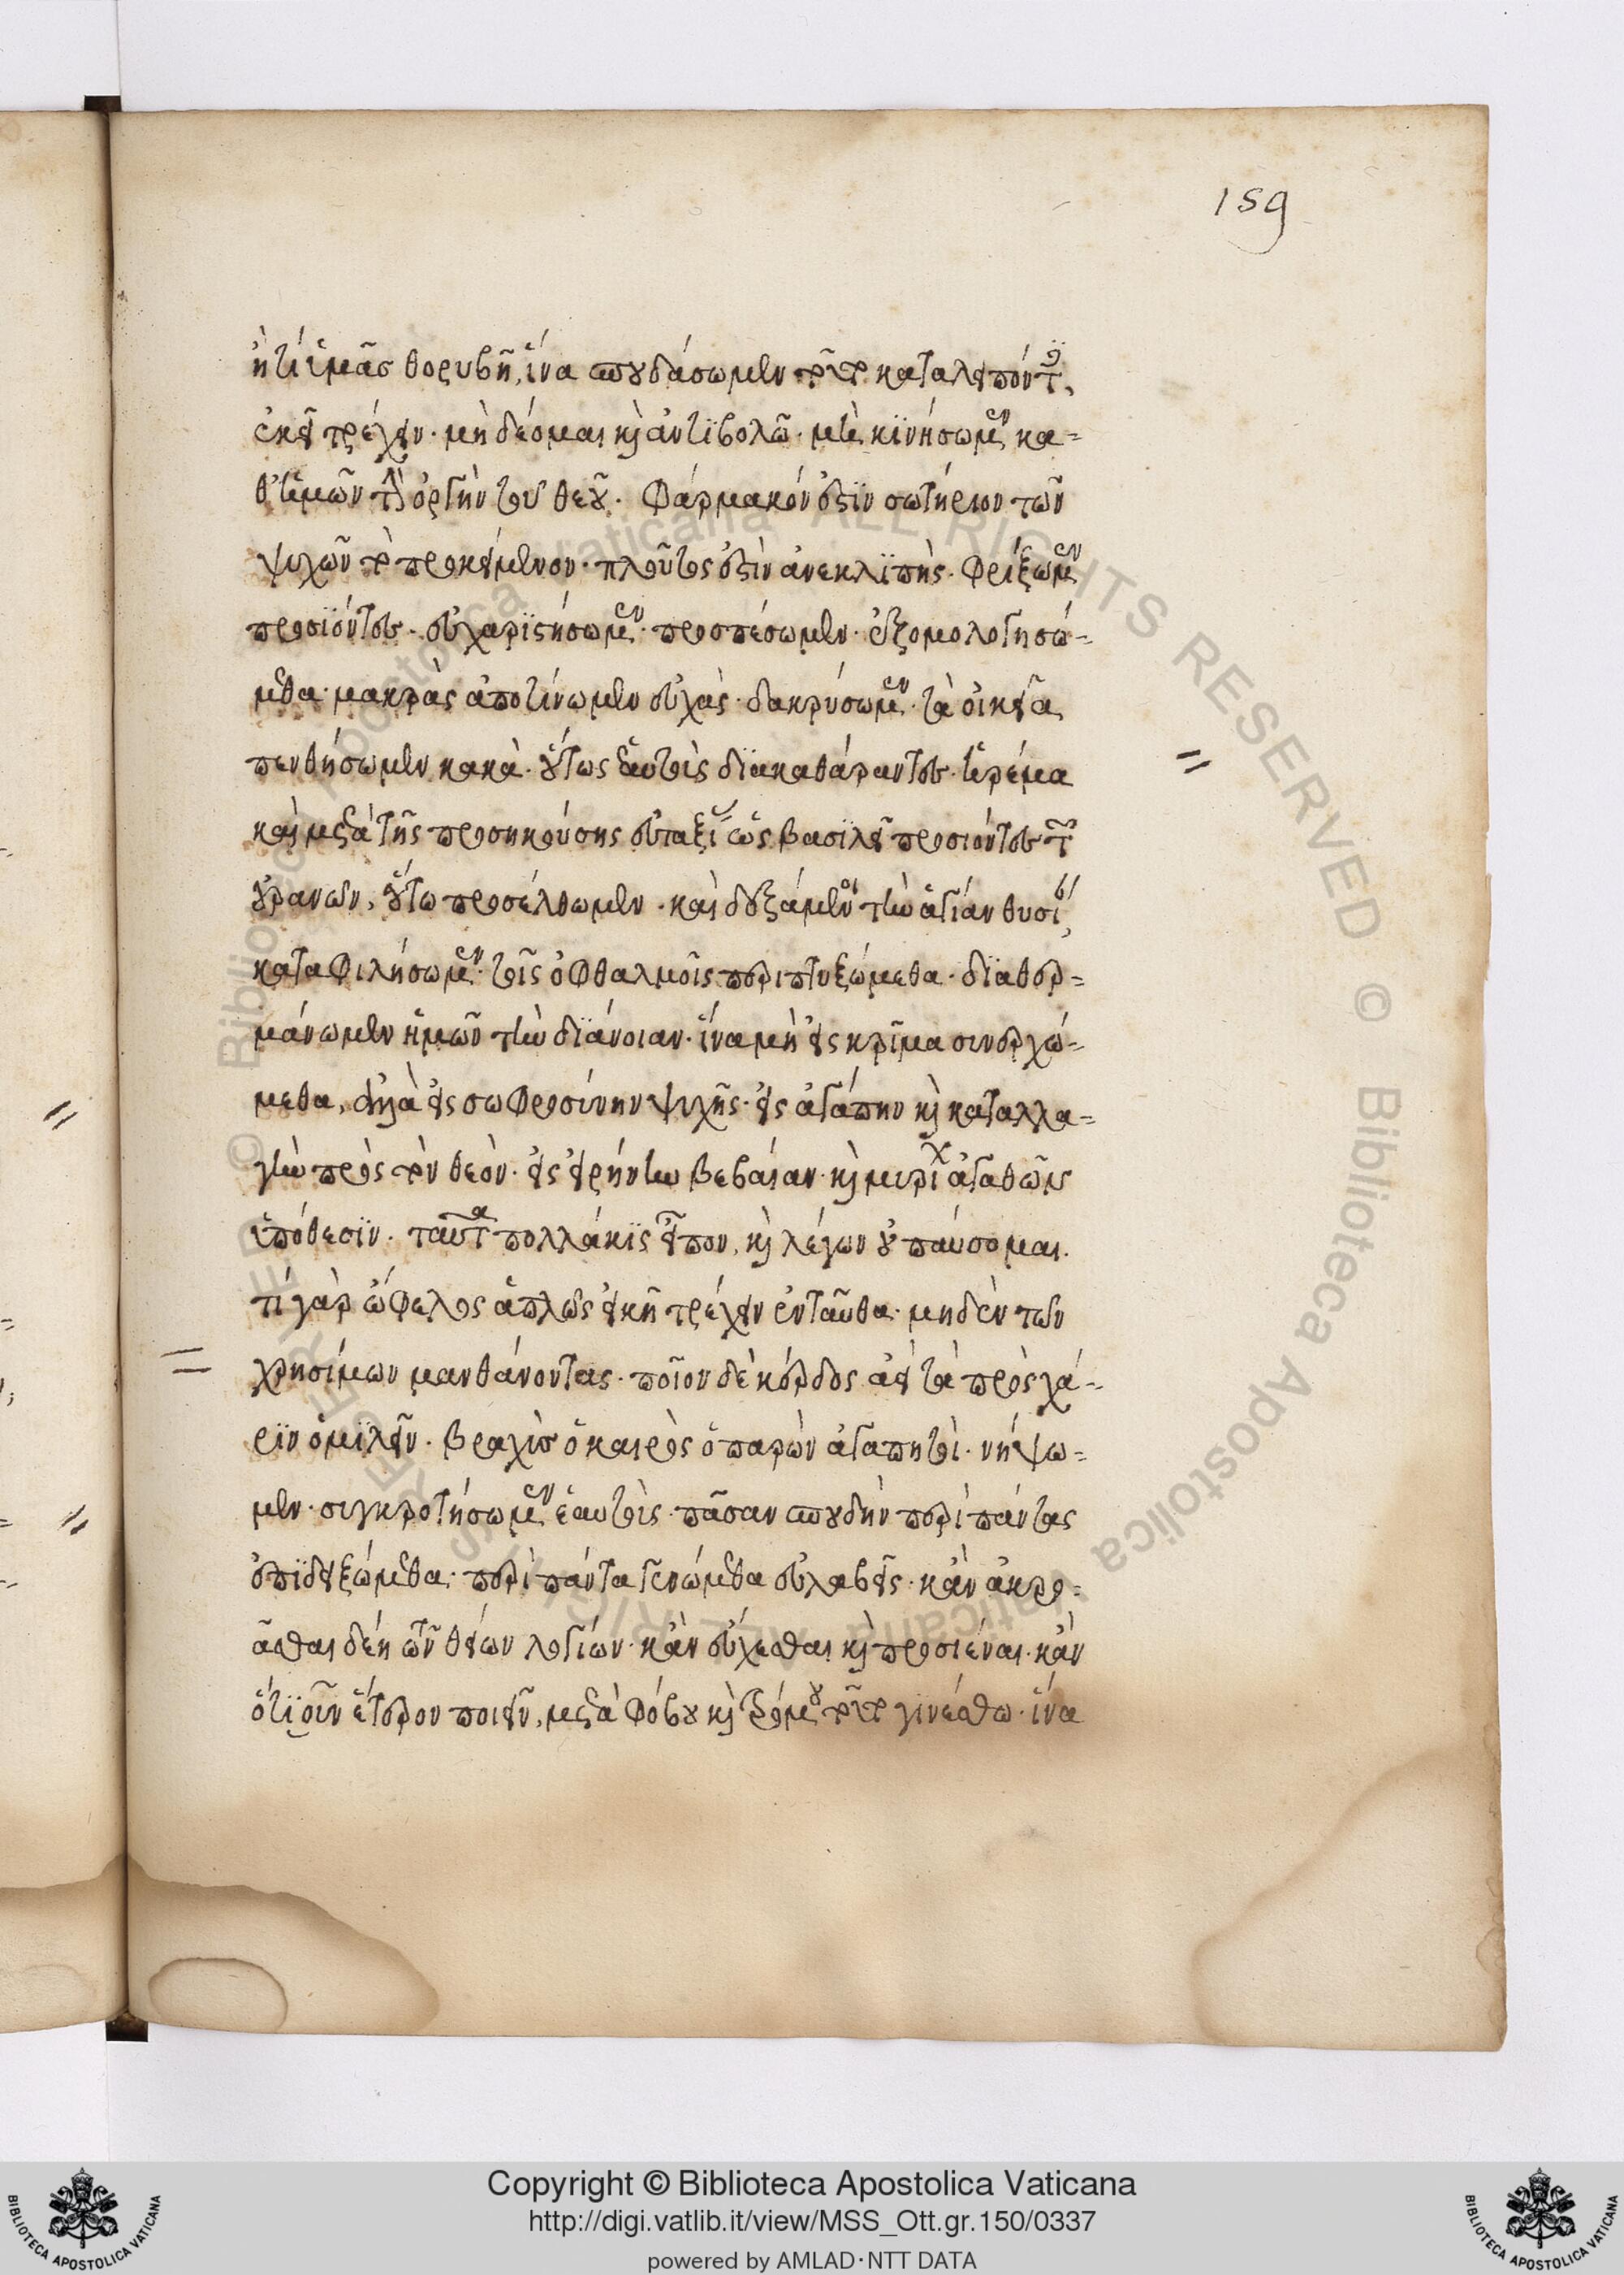 159
ἢ τί ἡμᾶς θορυβῆ, ἵνα σπουδάσωμεν τοῦτο καταλιπόντες,
ἐκεῖ τρέχειν. μὴ δέομαι καὶ ἀντιβολῶ. μὴ κινήσωμεν κα-
θ' ἡμῶν τὴν ὀργὴν τοῦ θεοῦ. φάρμακόν ἐστιν σωτήριον τῶν
ψυχῶν τὸ προκείμενον. πλοῦτος ἐστὶν ἀνεκλιπής. φρίξωμεν
προσιόντες. εὐχαριστήσωμεν. προσπέσωμεν. ἐξομολογησώ-
μεθα. μακρὰς ἀποτίνωμεν εὐχάς. δακρύσωμεν. τὰ οἰκεῖα
πενθήσωμεν κακά. οὕτως ἑαυτοὺς διακαθάραντες. ἠρέμα
καὶ μετὰ τῆς προσηκούσης εὐταξί ὡς βασιλεῖ προσιόντες τῶν
οὐρανῶν, οὕτω προσέλθωμεν. καὶ δεξάμενοι τὴν ἁγίαν θυσί
καταφιλήσωμεν. τοῖς ὀφθαλμοῖς περιπτυξώμεθα. διαθερ-
μάνωμεν ἡμῶν τὴν διάνοιαν. ἵνα μὴ εἰς κρῖμα συνερχώ-
μεθα, ἀλλὰ εἰς σωφροσύνην ψυχῆς. εἰς ἀγάπην καὶ καταλλα-
γὴν πρὸς τὸν θεόν. εἰς εἰρήνην βεβαίαν. καὶ μυρί ἀγαθῶν
ὑπόθεσιν. ταῦτα πολλάκις εἶπον, καὶ λέγων οὐ παύσομαι.
τί γὰρ ὤφελος ἁπλῶς εἰκῆ τρέχειν ἐνταῦθα. μηδὲν τῶν
χρησίμων μανθάνοντας. ποῖον δὲ κέρδος ἀεὶ τὰ πρὸς χά-
ριν ὁμιλεῖν. βραχὺς ὁ καιρὸς ὁ παρὼν ἀγαπητοί. νήψω-
μεν. συγκροτήσωμεν ἑαυτούς. πᾶσαν σπουδὴν περὶ πάντας
ἐπιδειξώμεθα. περὶ πάντα γενώμεθα εὐλαβεῖς. κἂν ἀκρο-
ᾶσθαι δέη τῶν θείων λογίων. κἂν εὔχεσθαι καὶ προσιέναι. κἂν
ὁτιοῦν ἕτερον ποιεῖν, μετὰ φόβου καὶ τρόμου τοῦτο γινέσθω. ἵνα
Copyright © Biblioteca Apostolica Vaticana
http://digi.vatlib.it/view/MSS_Ott.gr.150/0337
powered by AMLAD·NTT DATA
BIBLIOTECA APOSTOLICA VATICANA
BIBLIOTECA APOSTOLICA VATICANA